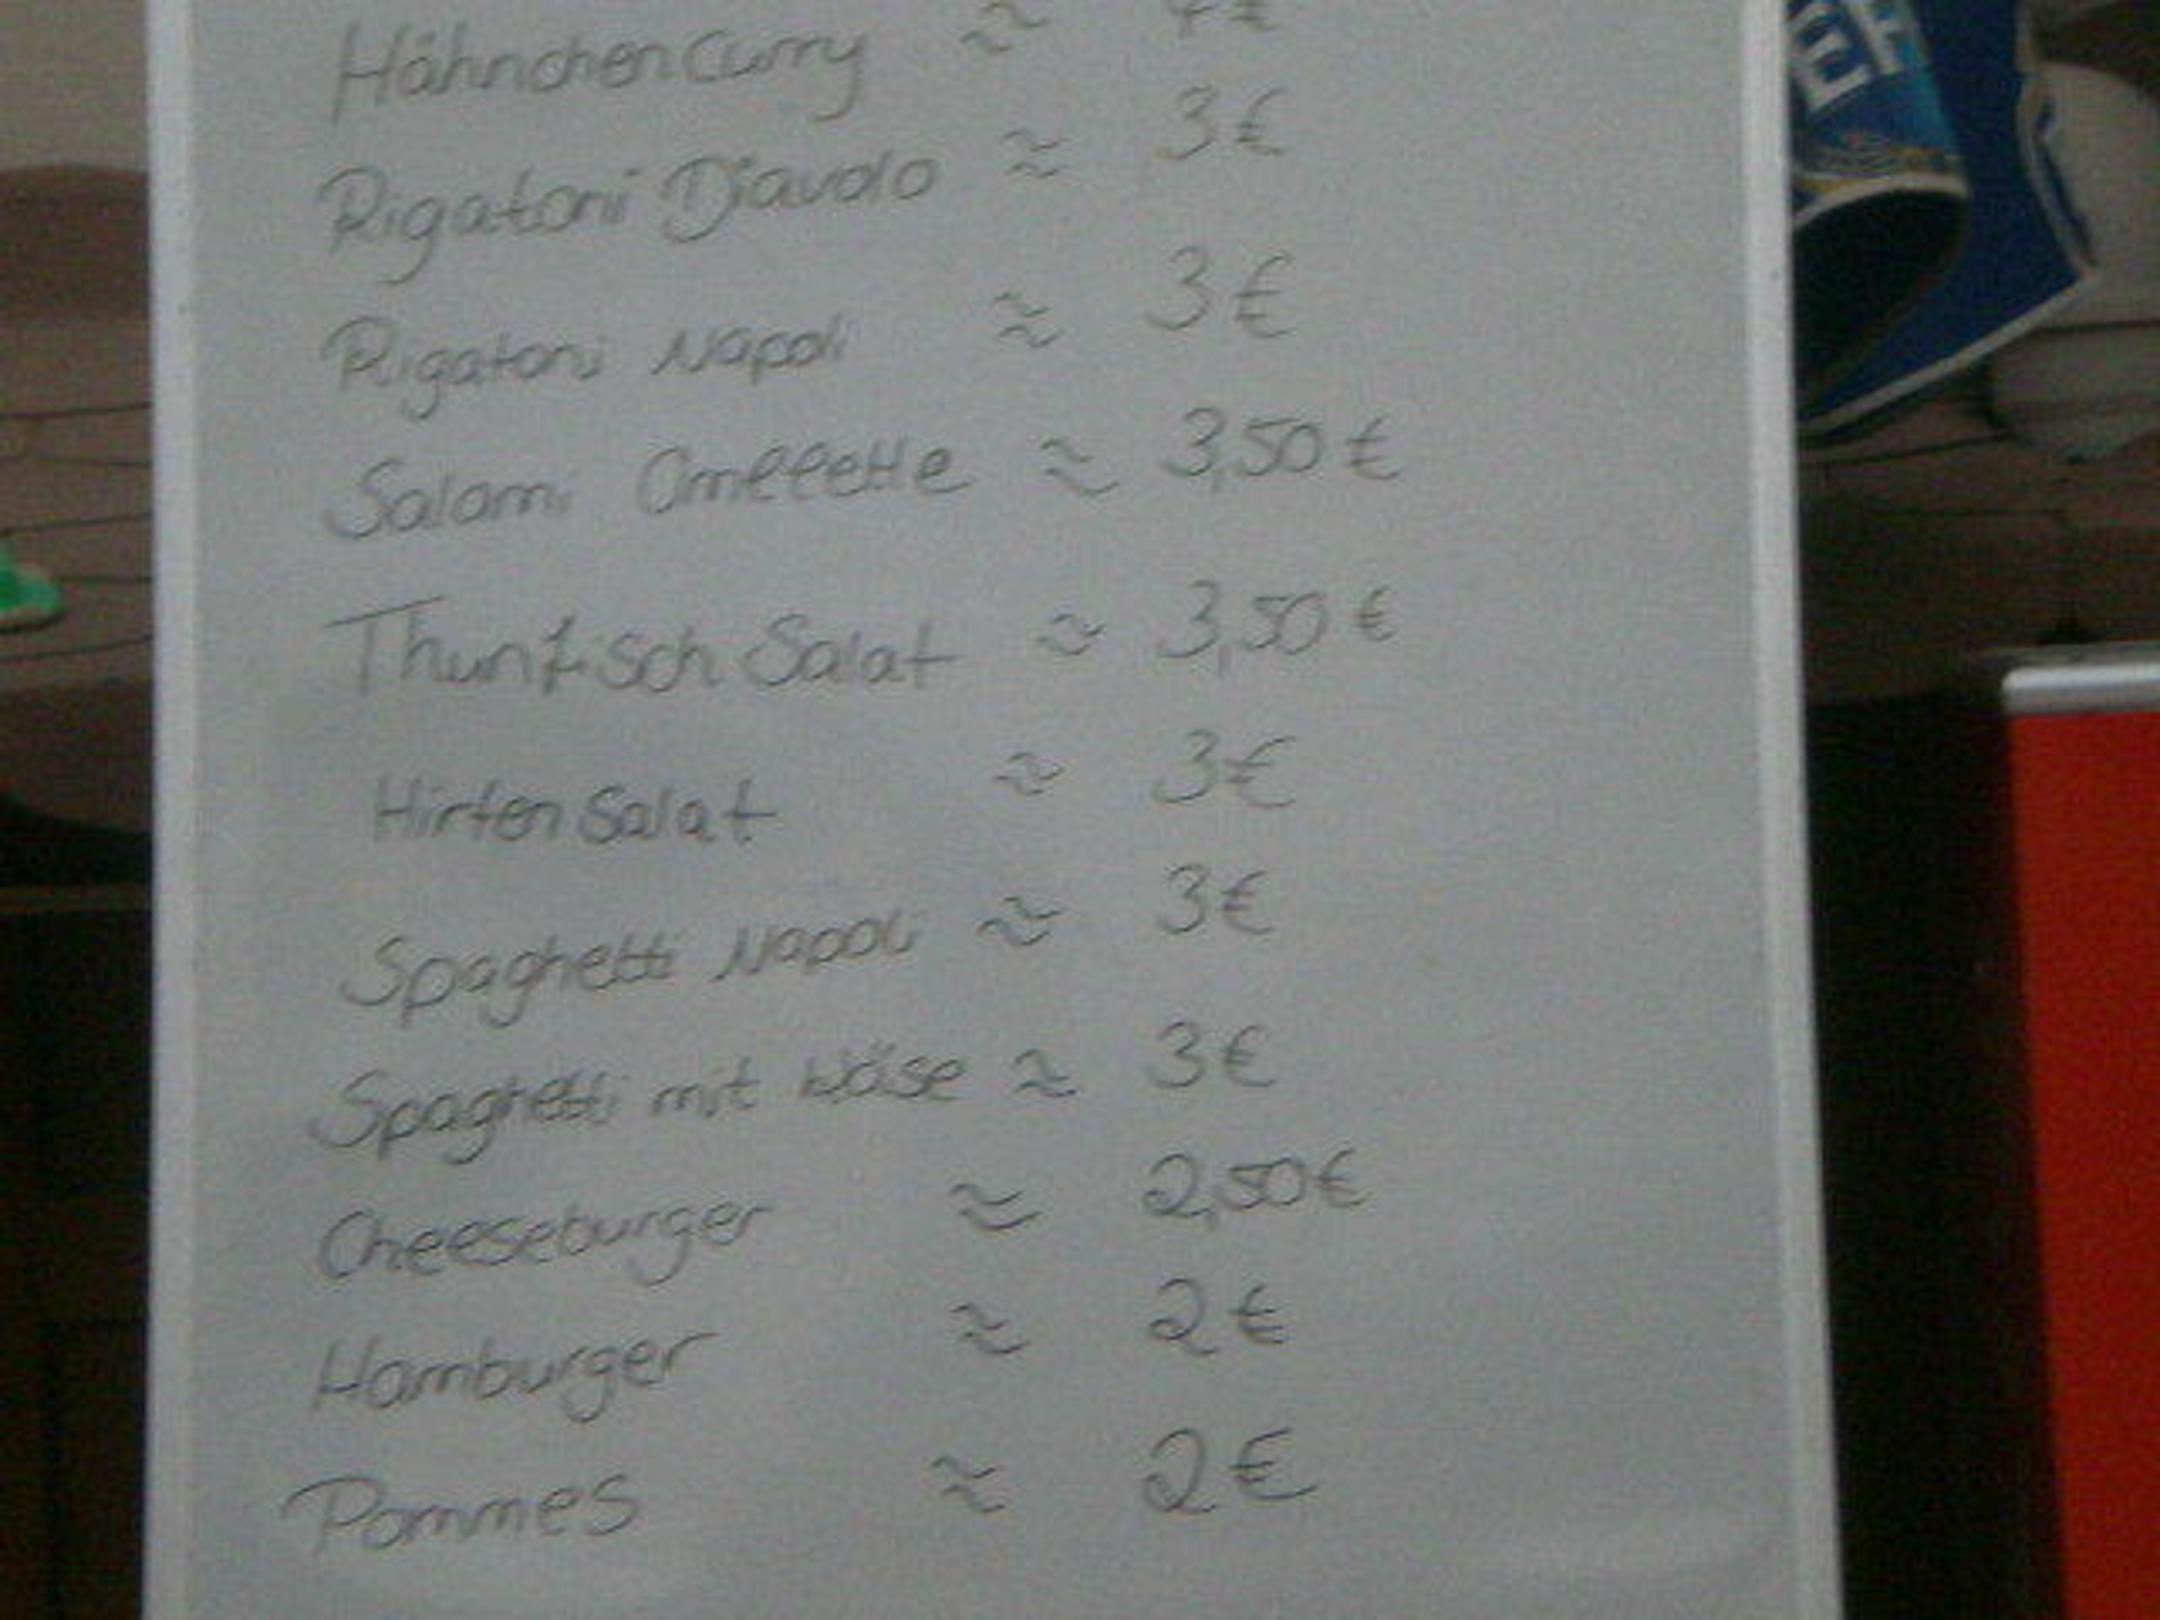 Hähnchen Curry ≈ 4€
Rigatoni Diavolo ≈ 3€
Rigatoni Napoli ≈ 3€
Salami Omellette ≈ 3,50€
Thunfisch Salat ≈ 3,50€
Hirten Salat ≈ 3€
Spaghetti Napoli ≈ 3€
Spaghetti mit Käse ≈ 3€
Cheeseburger ≈ 2,50€
Hamburger ≈ 2€
Pommes ≈ 2€